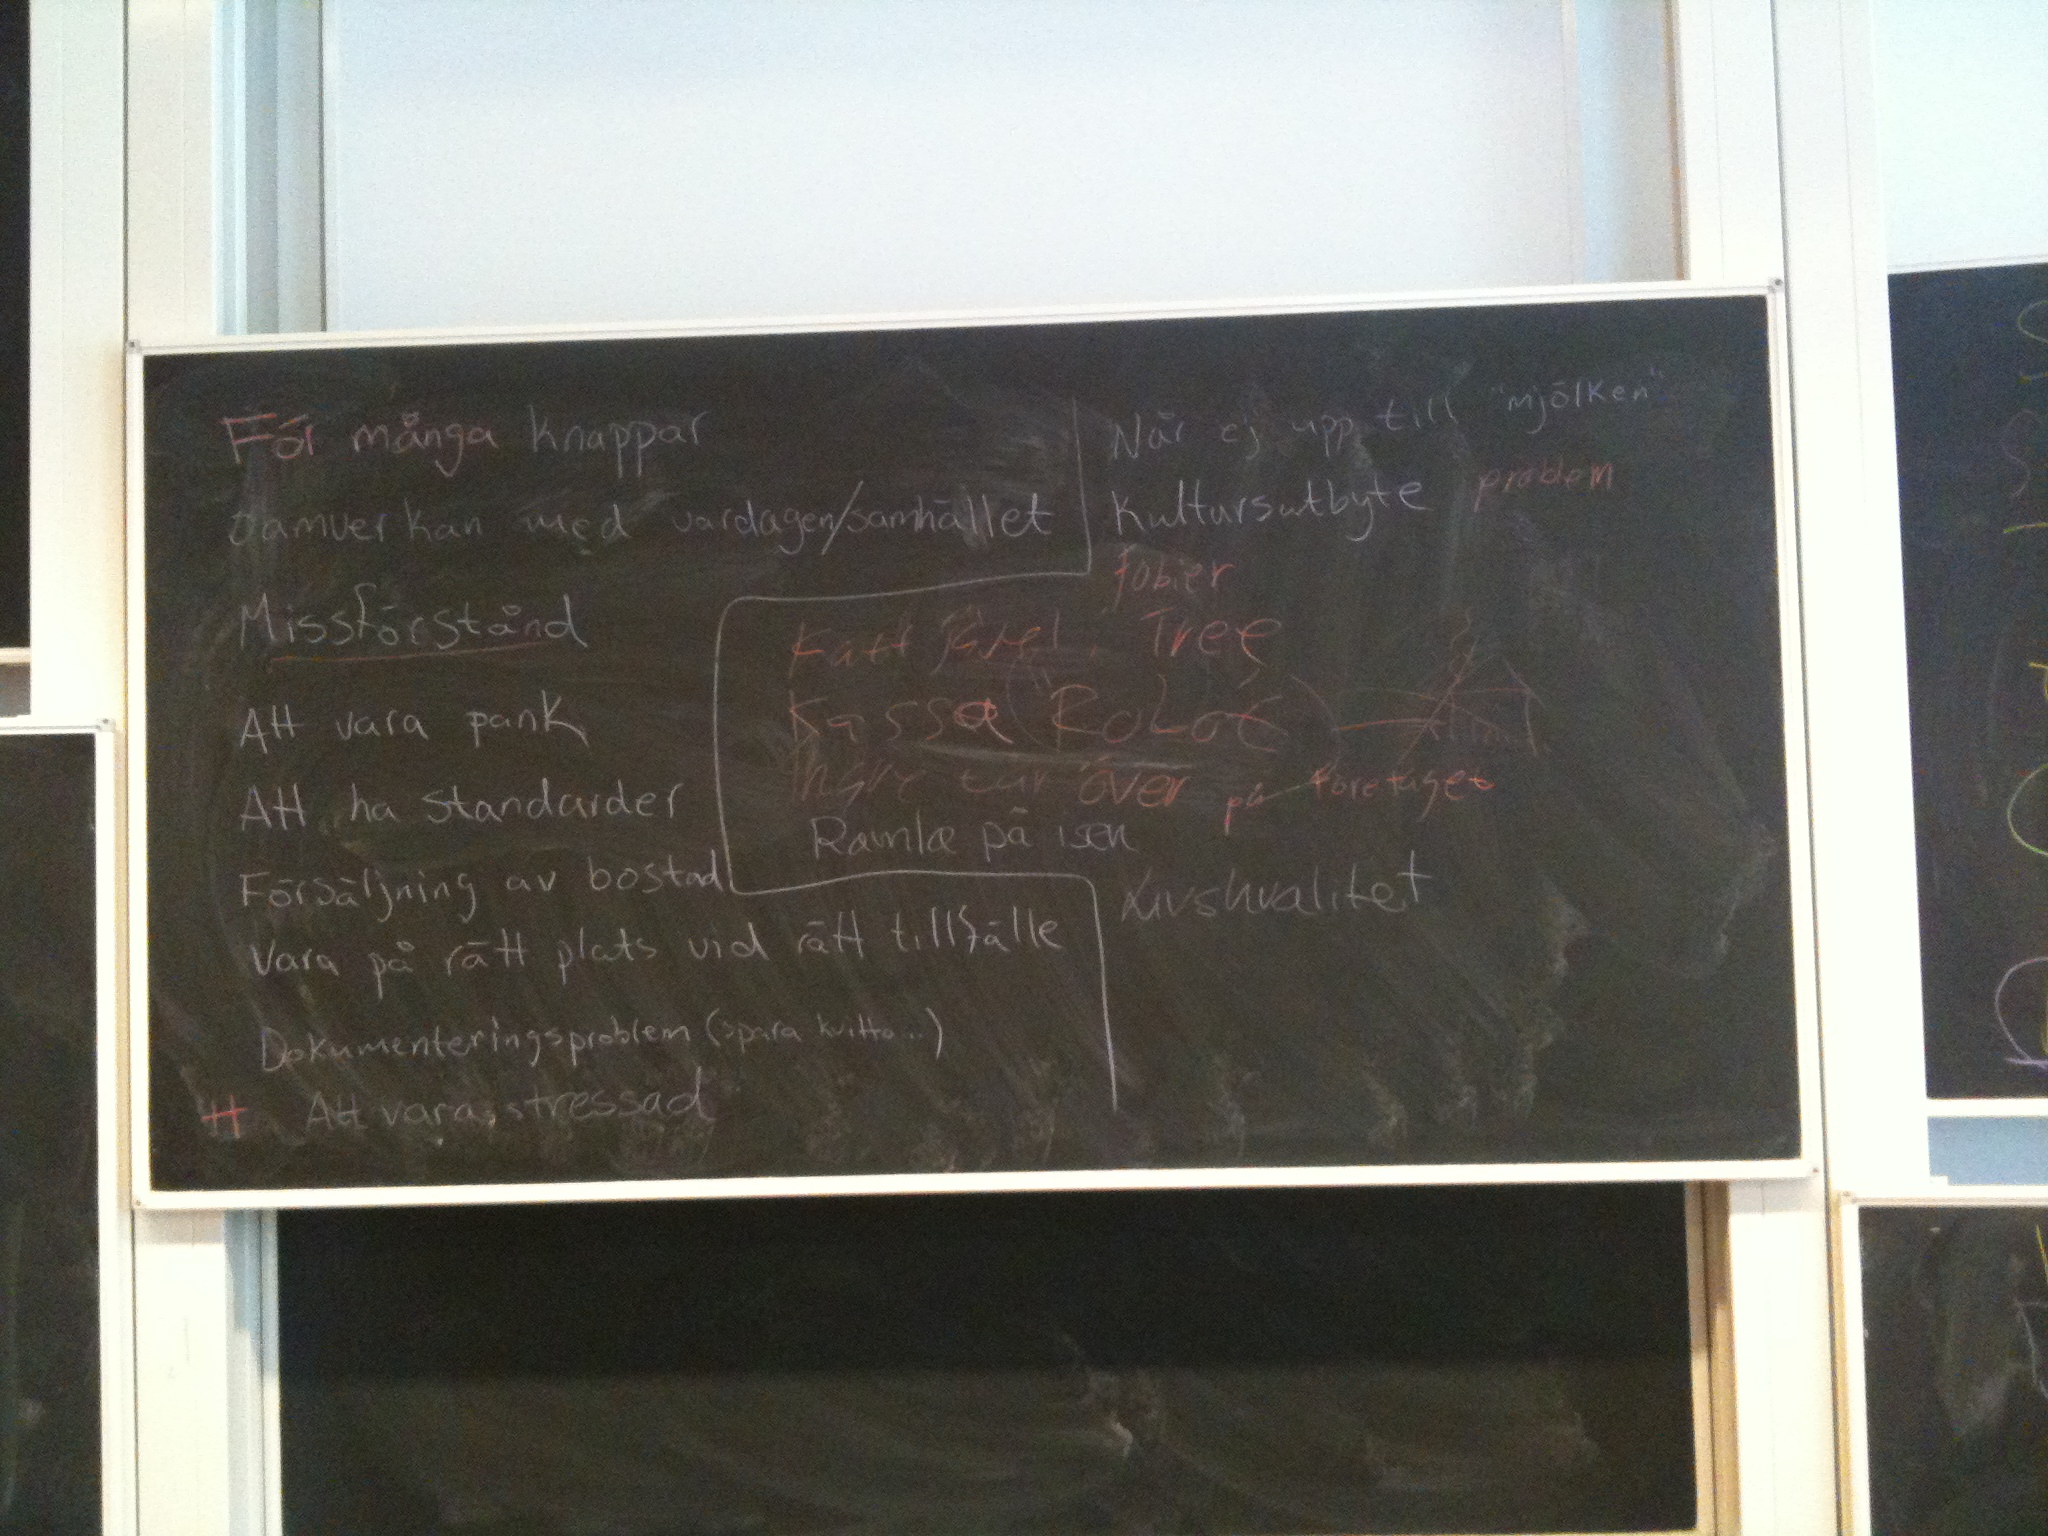 För många knappar
Samverkan med vardagen/samhället
Missförstånd
Att vara pank
Att ha standarder
Försäljning av bostad
Vara på rätt plats vid rätt tillfälle
Dokumenteringsproblem (spara kvitto...)
Att vara stressad
Når ej upp till "mjölken"
Kultursutbyte problem
fobier
Tree
Kassa Robot
tar över på företaget
Ramla på isen
Livskvalitet